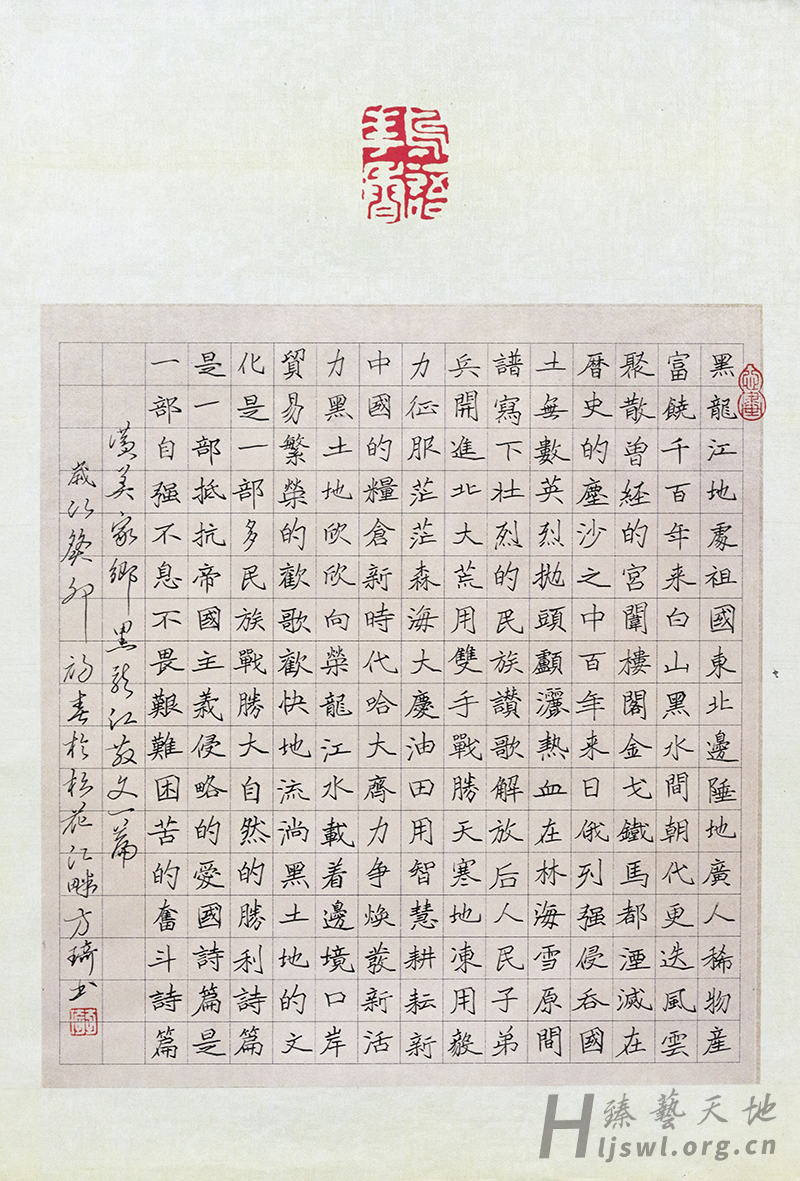 黑龍江地處祖國東北邊陲地廣人稀物産
富饒千百年来白山黑水間朝代更迭風雲
聚散曽經的宮闈樓閣金戈鐵馬都湮滅在
曆史的塵沙之中百年来日俄列强侵吞國
土無數英烈抛頭顱灑熱血在林海雪原間
譜寫下壮烈的民族讃歌解放后人民子弟
兵開進北大荒用雙手戰勝天寒地凍用毅
力征服茫茫森海大慶油田用智慧耕耘新
中國的糧倉新時代哈大齊力争焕發新活
力黑土地欣欣向榮龍江水載着邊境口岸
貿易繁榮的歡歌歡快地流淌黑土地的文
化是一部多民族戰勝大自然的勝利詩篇
是一部抵抗帝國主義侵略的愛國詩篇是
一部自强不息不畏艱難困苦的奮斗詩篇
讃美家鄉黑龍江散文一篇
歲次癸卯初春於松花江畔方琦书
臻藝天地
Hljswl.org.cn